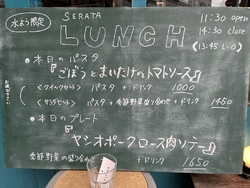 水よう限定
SERATA
LUNCH
11:30 open
14:30 close
(13:45 L.O)
●本日のパスタ
『ごぼうとまいたけのトマトソース』
<クイックセット> パスタ + ドリンク 1000
<サラダセット> パスタ + 季節野菜盛り合わせ + ドリンク 1450
●本日のプレート
『ヤシオポークロース肉ソテー』
季節野菜の盛り合わせ
+ ドリンク 1650